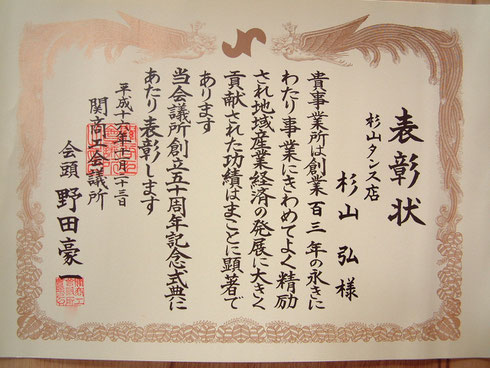 表彰状
杉山タンス店
杉山弘様
貴事業所は創業百三年の永きに
わたり事業にきわめてよく精励
され地域産業経済の発展に大きく
貢献された功績はまことに顕著で
あります
当会議所創立五十周年記念式典に
あたり表彰します
平成十六年十一月二十三日
関商工会議所
会頭 野田豪一